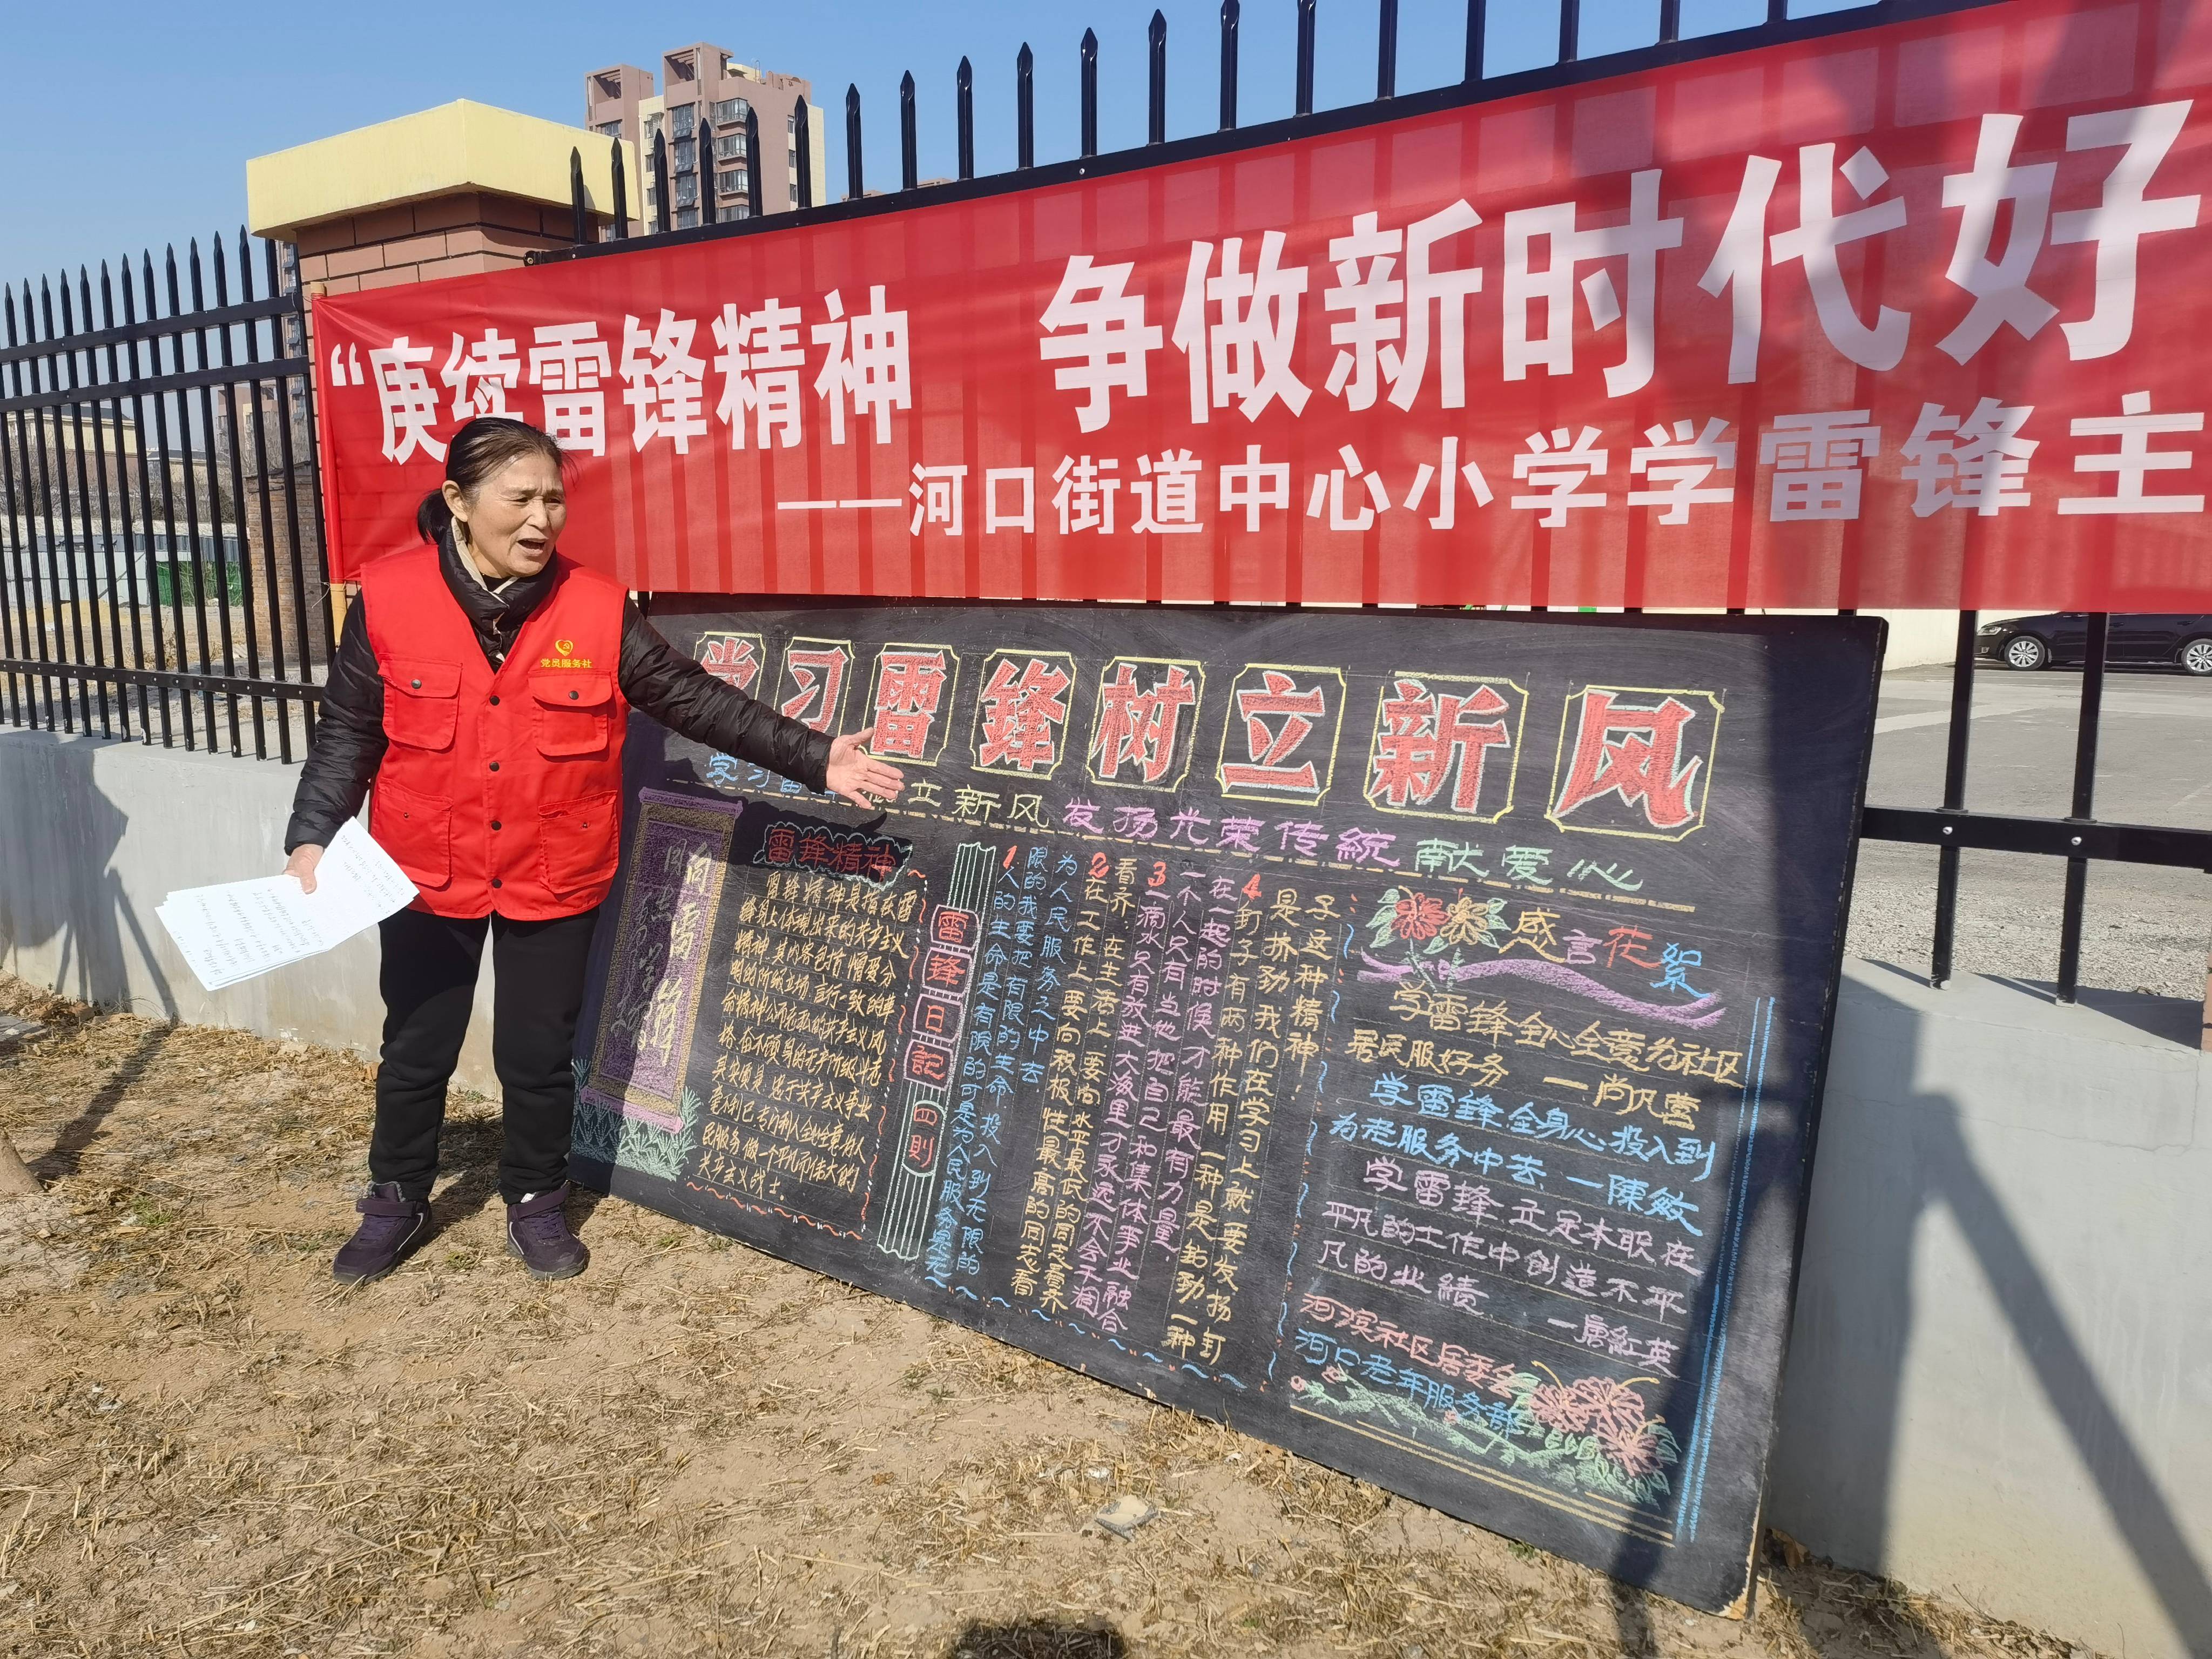 “庚续雷锋精神 争做新时代好
——河口街道中心小学学雷锋主
党员服务社
学习雷锋树立新风
学习雷锋 树立新风 发扬光荣传統 献爱心
向雷锋
雷锋精神
雷锋精神是指在雷
锋身上体现出来的共产主义
精神 其内容包括 憎爱分
明的阶级立场 言行一致的革
命精神 公而忘私的共产主义风
格 奋不顾身的无产阶级斗志
毫不利己专门利人全心全意为人
民服务 做一个平凡而伟大的
共产主义战士
雷锋日記四則
1人的生命是有限的可是为人民服务是无
限的我要把有限的生命 投入到无限的
为人民服务之中去
2在工作上要向积极性最高的同志看
看齐 在生活上 要向水平最低的同志看齐
3一滴水只有放进大海里才永远不会干涸
一个人只有当他把自己和集体事业融合
在一起的时候才能最有力量
4钉子有两种作用 一种是钻劲 一种
是挤劲我们在学习上就要发扬钉
子这种精神！
感言花絮
学雷锋全心全意为社区
居民服好务 一尚风营
学雷锋全身心投入到
为老服务中去 一陳敏
学雷锋立足本职在
平凡的工作中創造不平
凡的业绩 一唐紅英
河滨社区居委会
河口老年服务部